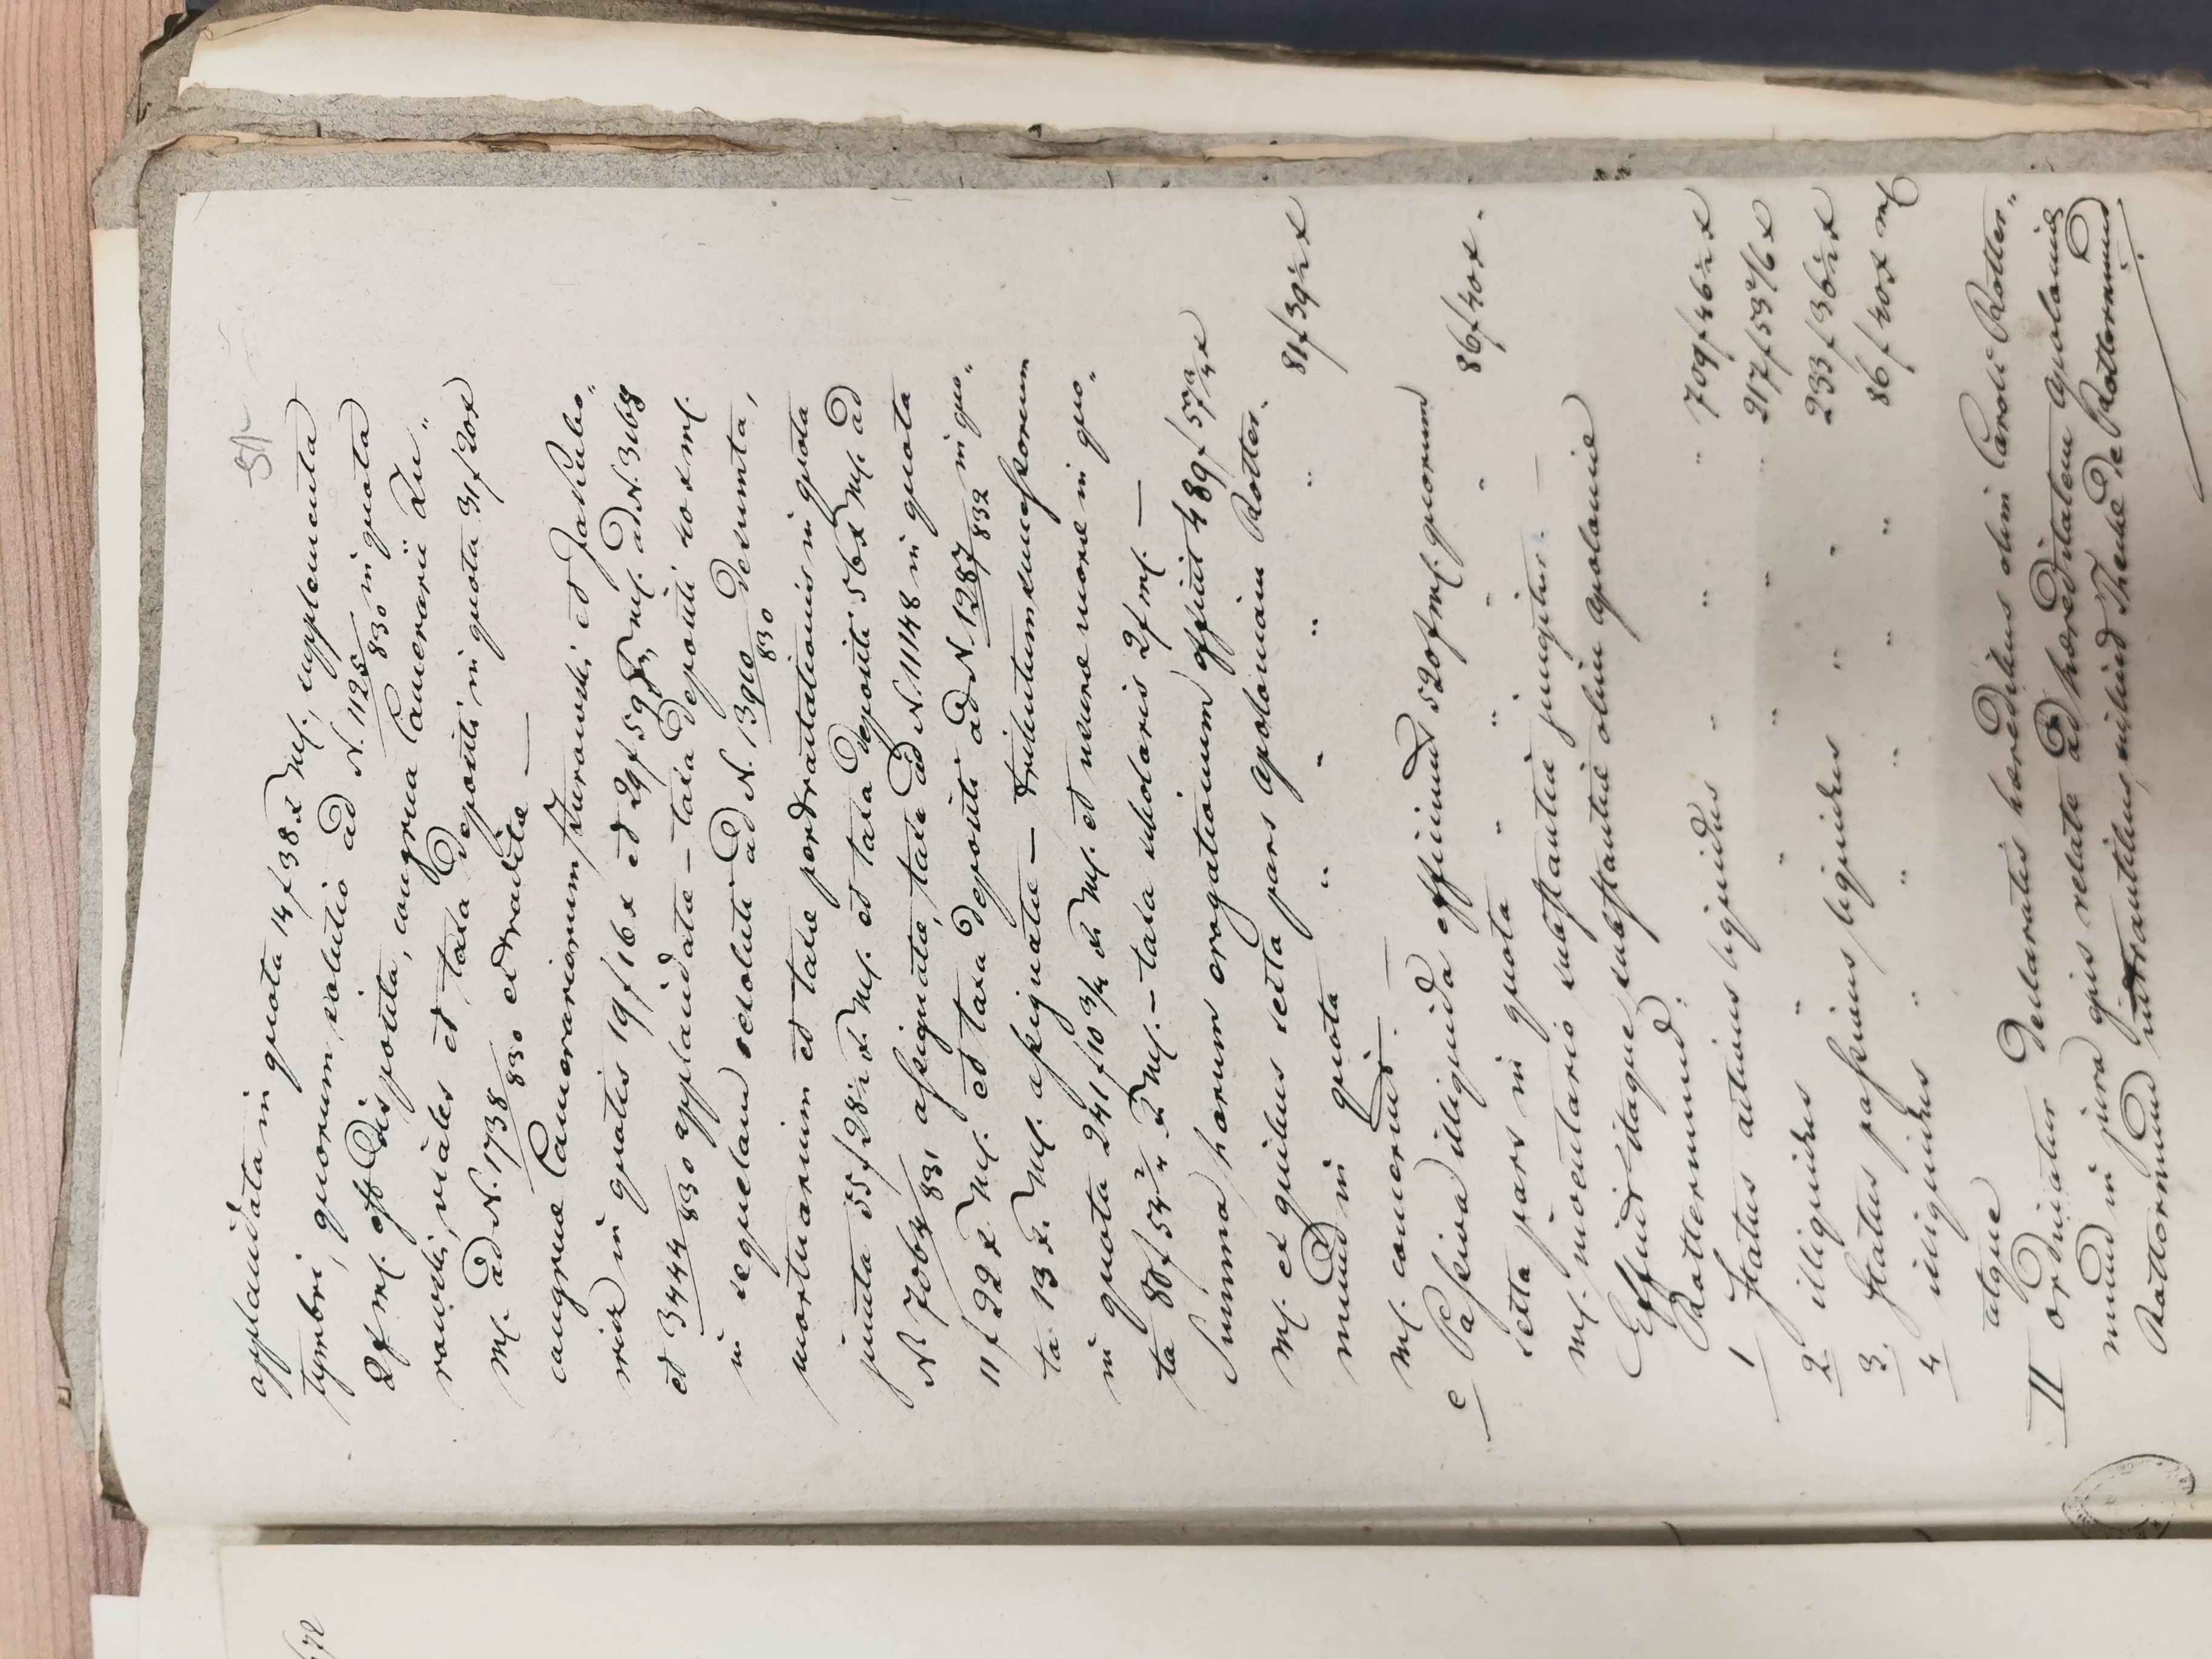 51
applacidata in quota 14 f 38 x Ml., supplementa
tymbri, quorum solutio ad N. 1125/830 in quota
2 f Ml. est disposita, congrua Camerarii Zu„
rowski, viales et taxa depositi in quota 31 f 20 x
Ml. ad N. 1738/830 extradita —
congruae Camerariorum Zurowski et Jakubo„
wicz in quotis 19 f 16 x et 29 f 59 x Ml. ad N. 3168
et 3444/830 applacidatae – taxa depositi 40 x Ml.
in sequelam resoluti ad N. 13910/830 desumta,
mortuarium et taxae pertractationis in quota
juncta 55 f 28 ½ x Ml. et taxa depositi 56 x Ml. ad
N. 7064/831 assignatae, taxae ad N. 11148 in quota
11 f 22 x Ml. et taxa depositi ad N. 1287/832 in quo„
ta 13 x Ml. assignatae – tributum successorum
in quota 241 f 10 ¾ x Ml. et usurae morae in quo„
ta 80 f 54 2/4 x Ml. – taxa scholaris 2 f Ml. —
Summa harum erogationum efficit 489 f 57 3/4 x
Ml. ex quibus sexta pars Apoloniam Rotter„
mund in quota „ „ „ „ 81 f 39 ½ x
Ml. concernit. —
e Passiva illiquida efficiunt 520 f Ml. quorum
sexta pars in quota „ „ „ „ 86 f 40 x „
Ml. inventario substantiae jungitur. —
Effluit itaque substantiae olim Apoloniae
Rottermund:
1 Status activus liquidus „ „ „ 709 f 46 ½ x
2 „ illiquidus „ „ „ „ 217 f 53 2/6 x
3. Status passivus liquidus „ „ 233 f 36 ½ x
4 „ illiquidus „ „ „ „ 86 f 40 x Ml
atque
II Ordinatur declaratis haeredibus olim Caroli Rotter„
mund in jura ejus relate ad haereditatem Apoloniae
Rottermund intrantibus, nihil Theclae de Rottermund